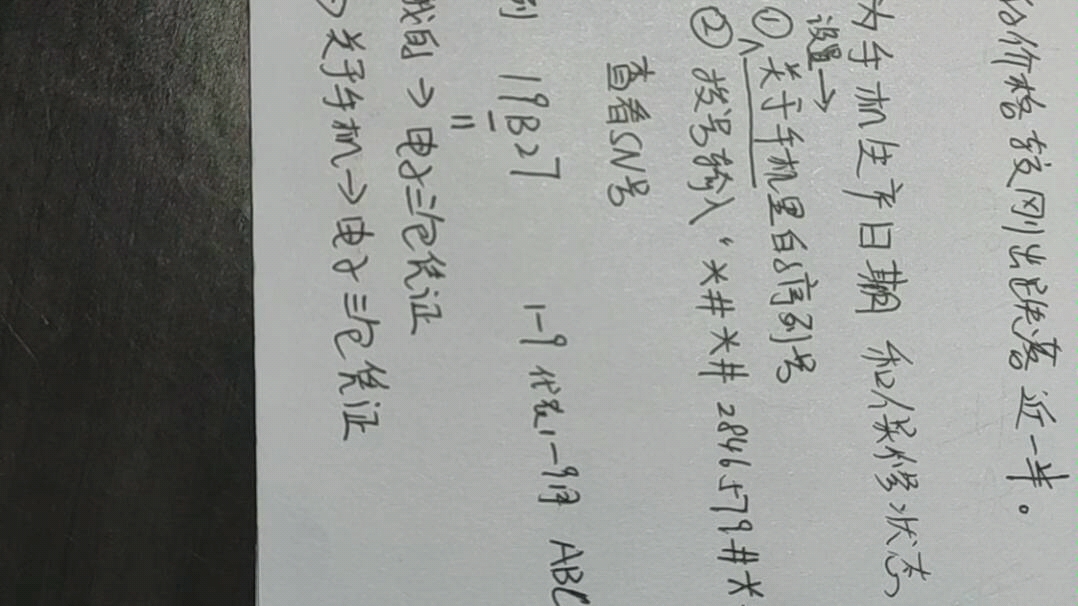 价格较刚出跌落近一半。
为手机生产日期 和保修状态
设置→
① 关于手机里的序列号
② 拨号输入“*#*#2846579#*
查看SN号
列 19B27 1-9代表1-9月 ABC
11
我的→电子三包凭证
关于手机→电子三包凭证